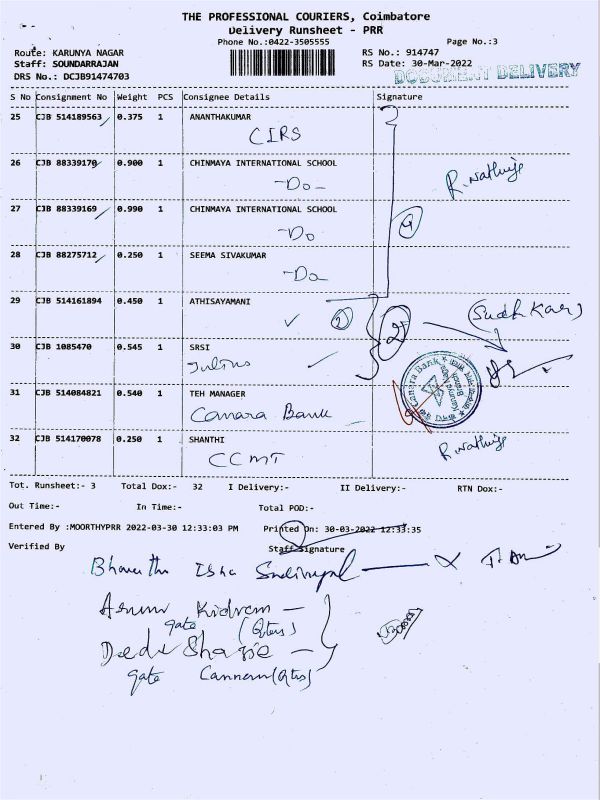 THE PROFESSIONAL COURIERS, Coimbatore
Delivery Runsheet - PRR
Phone No.:0422-3505555 Page No.:3
Route: KARUNYA NAGAR RS No.: 914747
Staff: SOUNDARRAJAN RS Date: 30-Mar-2022
DOCUMENT DELIVERY
DRS No.: DCJB91474703
S No Consignment No Weight PCS Consignee Details Signature
25 CJB 514189563 0.375 1 ANANTHAKUMAR
CIRS
26 CJB 88339170 0.900 1 CHINMAYA INTERNATIONAL SCHOOL
-Do-
27 CJB 88339169 0.990 1 CHINMAYA INTERNATIONAL SCHOOL
-Do
4
28 CJB 88275712 0.250 1 SEEMA SIVAKUMAR
-Do
29 CJB 514161894 0.450 1 ATHISAYAMANI
2 2
30 CJB 1085470 0.545 1 SRSI
31 CJB 514084821 0.540 1 TEH MANAGER
Canara Bank
Canara Bank
32 CJB 514170078 0.250 1 SHANTHI
CCMT
Tot. Runsheet:- 3 Total Dox:- 32 I Delivery:- II Delivery:- RTN Dox:-
Out Time:- In Time:- Total POD:-
Entered By :MOORTHYPRR 2022-03-30 12:33:03 PM Printed On: 30-03-2022 12:33:35
Verified By Staff Signature
Isha
gate
gate